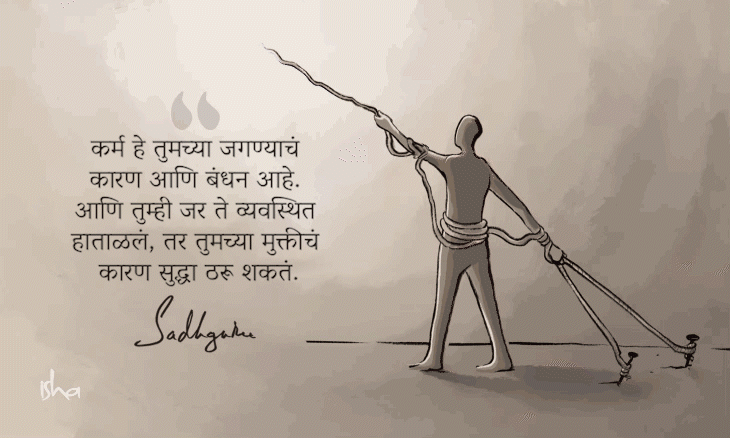 कर्म हे तुमच्या जगण्याचं
कारण आणि बंधन आहे.
आणि तुम्ही जर ते व्यवस्थित
हाताळलं, तर तुमच्या मुक्तीचं
कारण सुद्धा ठरू शकतं.
Sadhguru
isha